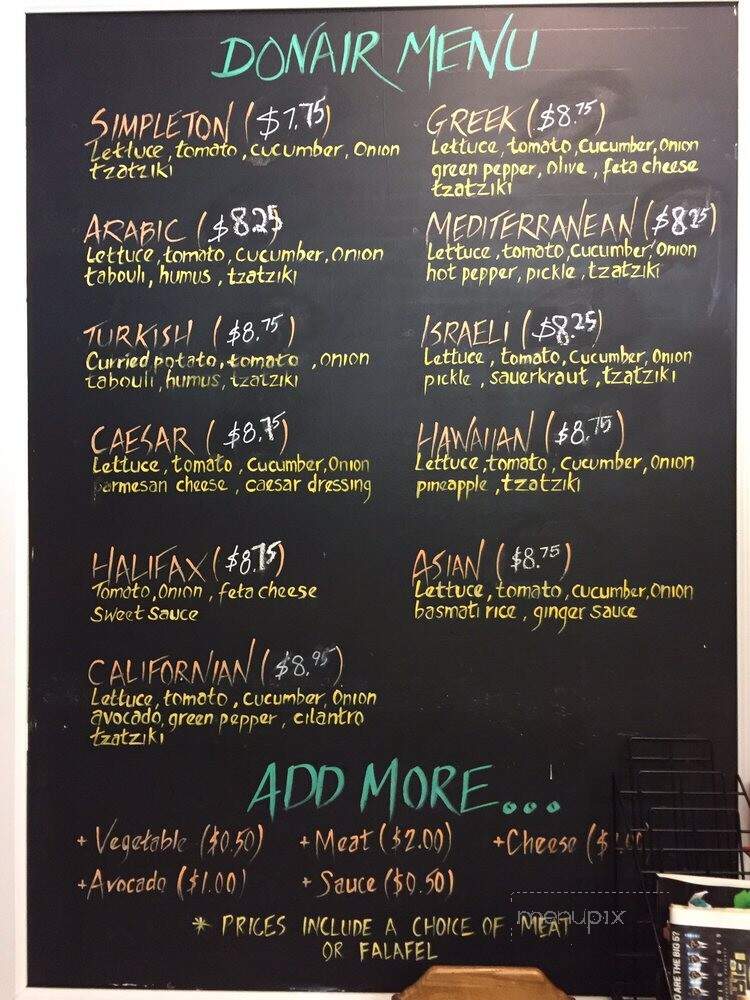 DONAIR MENU
SIMPLETON ($7.75)
Lettuce, tomato, cucumber, Onion
tzatziki
GREEK ($8.75)
Lettuce, tomato, Cucumber, Onion
green pepper, Olive, feta cheese
tzatziki
ARABIC ($8.25)
Lettuce, tomato, cucumber, Onion
tabouli, humus, tzatziki
MEDITERRANEAN ($8.25)
Lettuce, tomato, Cucumber, Onion
hot pepper, pickle, tzatziki
TURKISH ($8.75)
Curried potato, tomato, onion
tabouli, humus, tzatziki
ISRAELI ($8.25)
Lettuce, tomato, Cucumber, Onion
pickle, sauerkraut, tzatziki
CAESAR ($8.75)
Lettuce, tomato, Cucumber, Onion
parmesan cheese, caesar dressing
HAWAIIAN ($8.75)
Lettuce, tomato, Cucumber, Onion
pineapple, tzatziki
HALIFAX ($8.75)
Tomato, Onion, feta cheese
Sweet Sauce
ASIAN ($8.75)
Lettuce, tomato, cucumber, Onion
basmati rice, ginger sauce
CALIFORNIAN ($8.95)
Lettuce, tomato, Cucumber, Onion
avocado, green pepper, cilantro
tzatziki
ADD MORE...
+ Vegetable ($0.50) + Meat ($2.00) + Cheese ($
+ Avocado ($1.00) + Sauce ($0.50)
* PRICES INCLUDE A CHOICE OF MEAT
OR FALAFEL
menupix
ARE THE BIG 5?